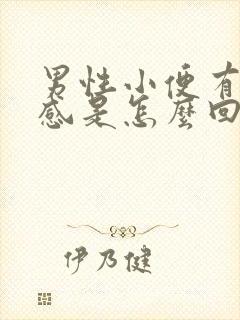 男性小便有
感是怎麼回
伊乃健